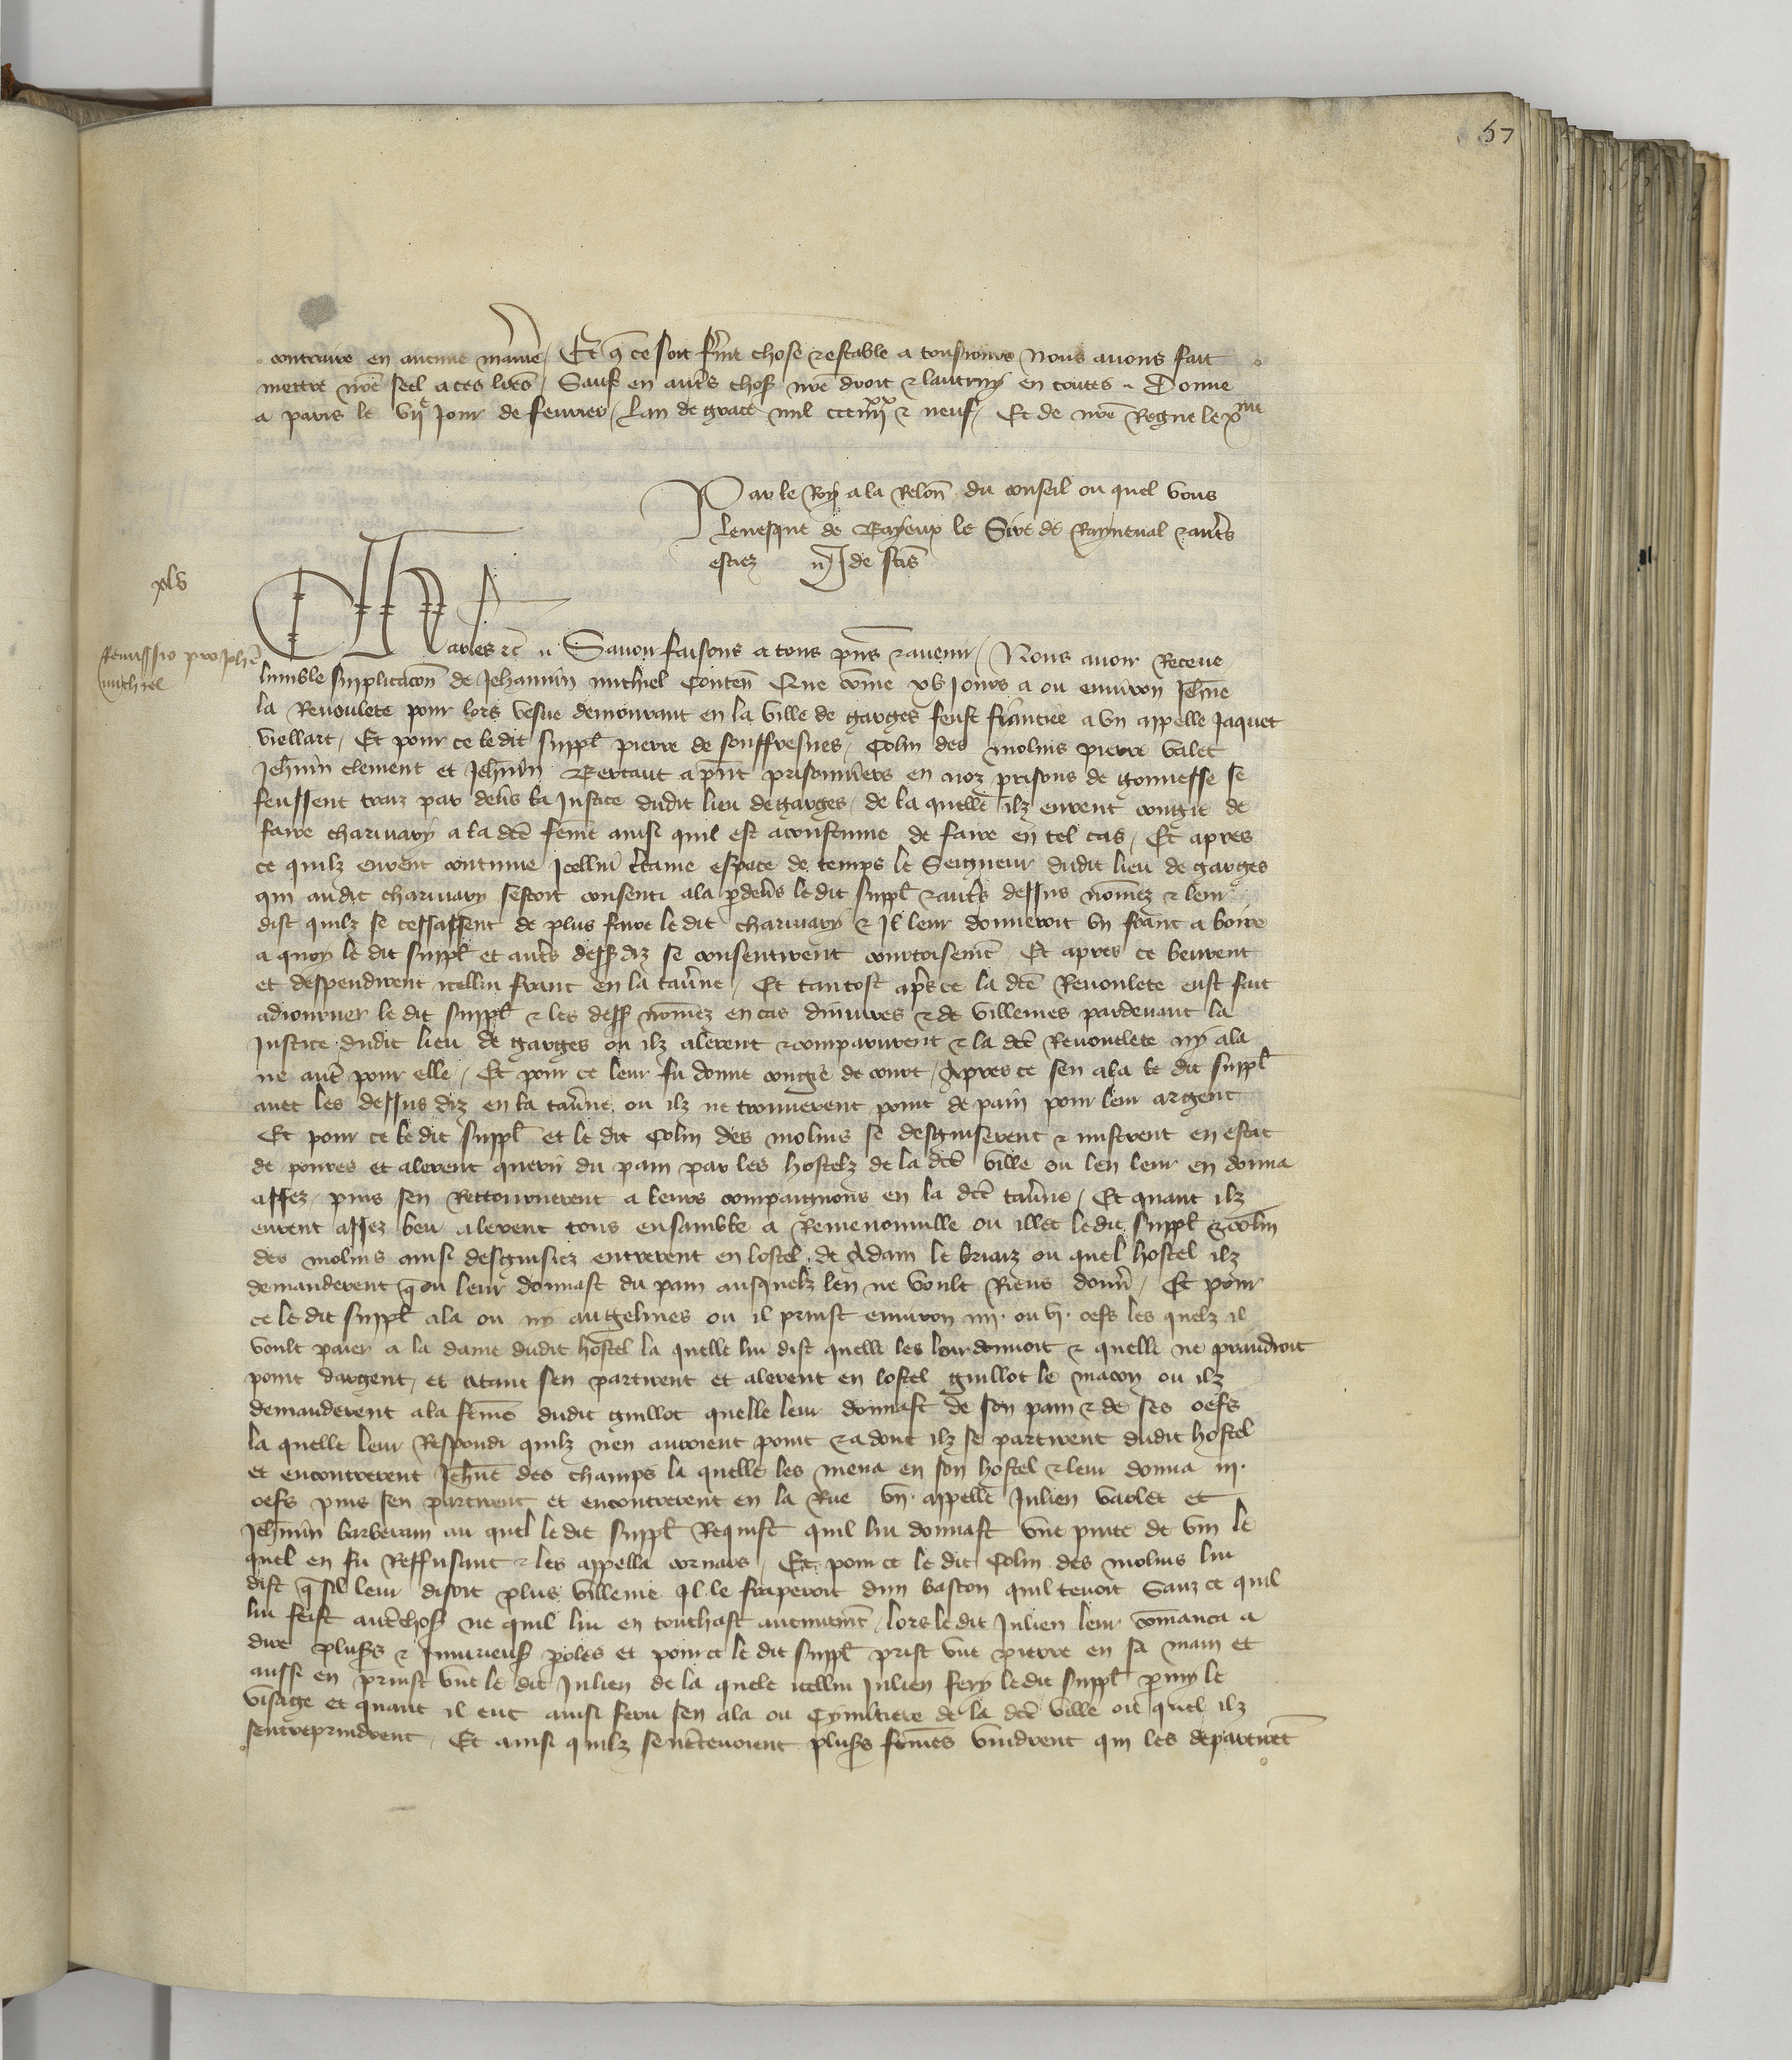 57
contraire en aucune maniē Et q̄ ce soit ferme chose & estable a tousiours Nous auons fait
mettre nr̄e seel a ces lrēs Sauf en autr̄s chos̄ nr̄e droit & lautruy en toutes Donne
a paris le vije Jour de feurier Lan de grace mil ccciiijxx & neuf Et de nr̄e Regne le xme
Par le Roy a la Reloñ du conseil ou quel vous
leuesque de Bayeux le Sire de Rayneual & autr̄s
estiez
xlv
Remissio pro Joh̄e
michiel
Charles &c̄ Sauoir faisons a tous p̄ns & auenir Nous auoir Receue
lumble supplicacoñ de Jehannin michiel Conteñ Que com̄e xv Jours a ou enuiron Jeh̄ne
la Reuoulete pour lors vesue demourant en la ville de garges feust fiancee a vn appelle Jaquet
viellart Et pour ce le dit suppl̄ pierre de souffresnes Colin des molins pierre valet
Jeh̄nin clement et Jeh̄nin Bertaut a p̄nt prisonniers en noz prisons de gonnesse se
feussent traiz par deu̅s la Justice dudit lieu de garges de la quelle ilz eurent congie de
faire chariuary a la dc̄e fem̄e ainsi quil est acoustume de faire en tel cas Et apres
ce quilz eurent continue Icellui c̄taine espace de temps le Seigneur dudit lieu de garges
qui audit chariuary sestoit consenti ala p̱deu̅s le dit suppl̄ & autr̄s dessus nom̄ez & leur
dist quilz se cessassent de plus faire le dit chariuary & Il leur donneroit vn franc a boire
a quoy le dit suppl̄ et autr̄s dess̄ diz se consentirent courtoisem̄t Et apres ce beurent
et despendirent icellui franc en la tau̅ne Et tantost apr̄s ce la dc̄e Reuoulete eust fait
adiourner le dit suppl̄ & les dess̄ nom̄ez en cas diniures & de villenies pardeuant la
Justice dudit lieu de garges ou ilz alerent & comparurent & la dc̄e Reuoulete ny ala
ne autr̄e pour elle Et pour ce leur fu donne congie de court Apres ce sen ala le dit suppl̄
auec les dessus diz en la tau̅ne ou ilz ne trouuerent point de pain pour leur argent
Et pour ce le dit suppl̄ et le dit Colin des molins se desguiserent & mistrent en estat
de poures et alerent querir̄ du pain par les hostelz de la dc̄e ville ou len leur en donna
assez puis sen Retournerent a leurs compaignons en la dc̄e tau̅ne Et quant ilz
eurent assez beu alerent tous ensamble a Remenonuille ou illec le dit suppl̄ & colin
des molins ainsi desguisiez entrerent en lostel de Adam le briaiz ou quel hostel ilz
demanderent q̄ on leur donnast du pain ausquelz len ne voult Riens donn̄ Et pour
ce le dit suppl̄ ala ou ny au gelines ou il prinst enuiron iiij. ou vj. oefs les quelz il
voult paier a la dame dudit hostel la quelle lui dist quelle les leur donnoit & quelle ne prandroit
point dargent et atant sen partirent et alerent en lostel guillot le macon ou ilz
demanderent ala fem̄e dudit guillot quelle leur donnast de son pain & de ses oefs
la quelle leur Respondi quilz nen auroient point & adonc ilz se partirent dudit hostel
et encontrerent Jeh̄ne des champs la quelle les mena en son hostel & leur donna iij.
oefs puis sen partirent et encontrerent en la Rue vn appelle Julien varlet et
Jeh̄nin barberam au quel le dit suppl̄ Requist quil lui donnast vne pinte de vin le
quel en fu Reffusant & les appella cornars Et pour ce le dit Colin des molins lui
dist q̄ sil leur disoit plus villenie Il le fraperoit dun baston quil tenoit Sanz ce quil
lui feist autr̄e chos̄ ne quil lui en touchast aucunem̄t lors le dit Julien leur com̄anca a
dire plus̄s & Iniurieus̄ p̱oles et pour ce le dit suppl̄ prist vne pierre en sa main et
aussi en prinst vne le dit Julien de la quele icellui Julien fery le dit suppl̄ p̱my le
visage et quant il eut ainsi feru sen ala ou Cymetiere de la dc̄e ville ou quel ilz
sentreprindrent Et ainsi quilz sentr̄etenoient plus̄s fem̄es vindrent qui les departirēt